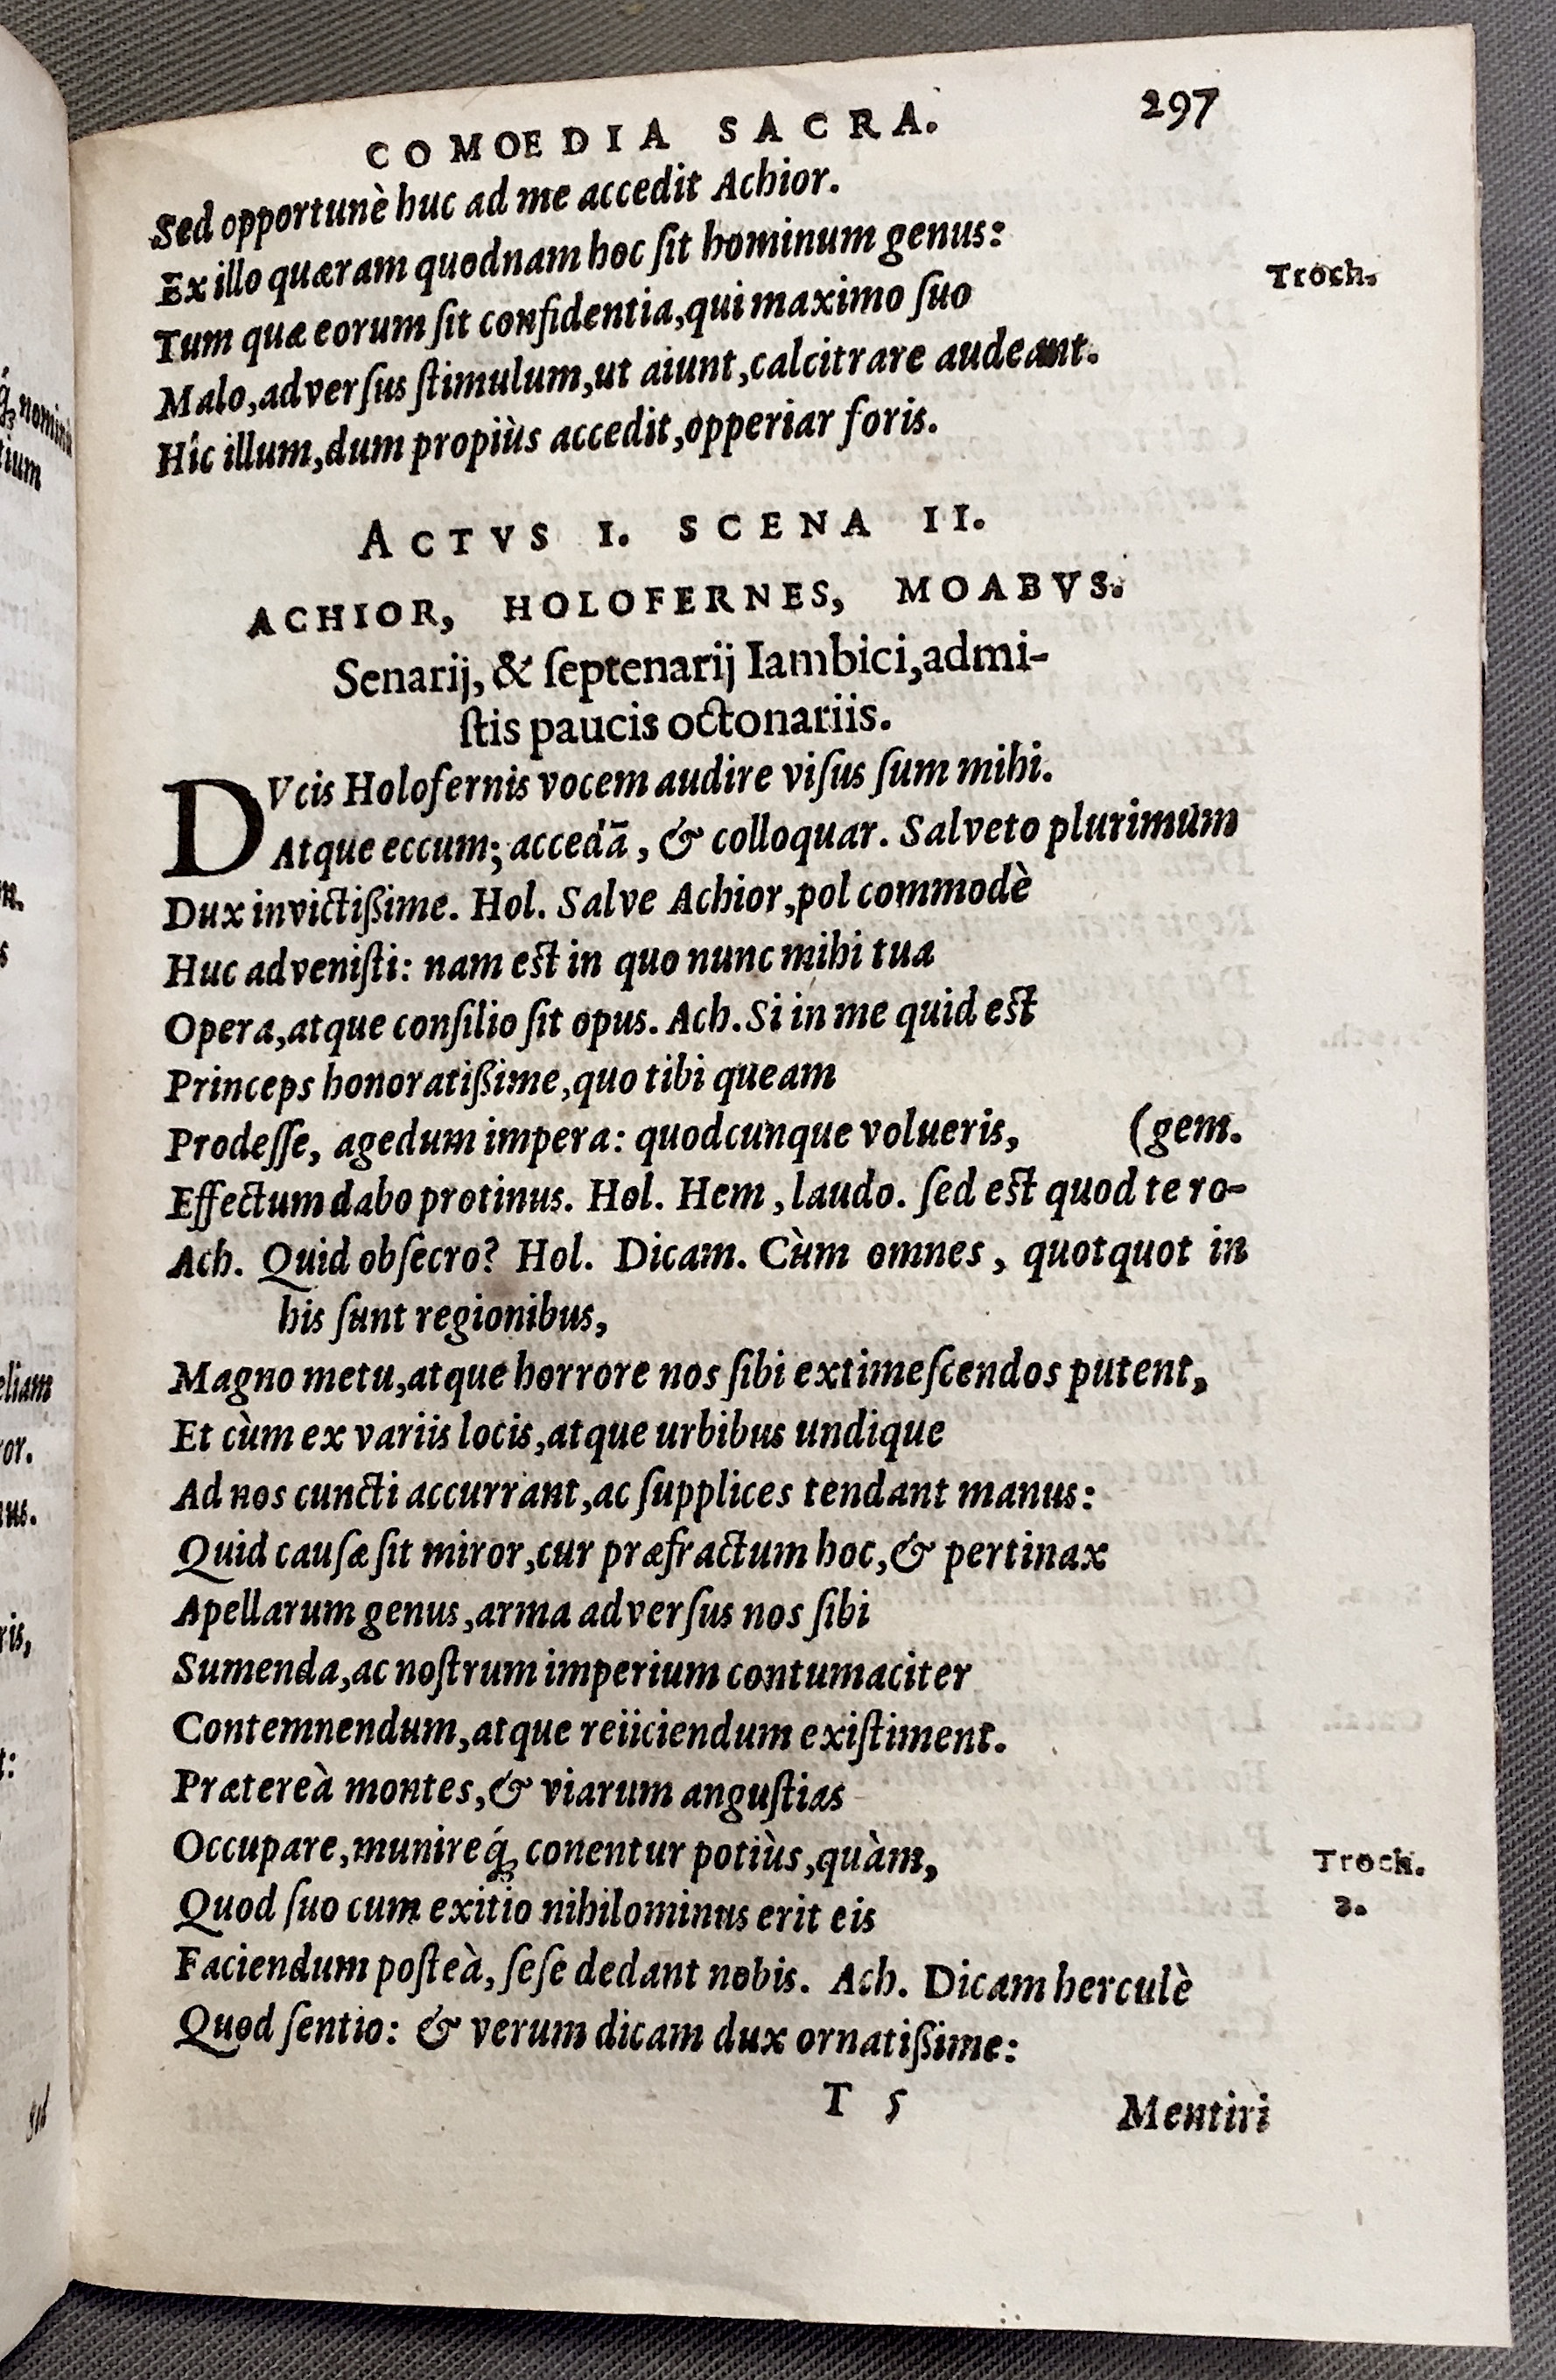 COMOEDIA SACRA. 297
Sed opportunè huc ad me accedit Achior.
Ex illo quæram quodnam hoc ſit hominum genus: Troch.
Tum quæ eorum ſit confidentia,qui maximo ſuo
Malo,adverſus ſtimulum,ut aiunt,calcitrare audeant.
Hîc illum,dum propiùs accedit,opperiar foris.
ACTVS I. SCENA II.
ACHIOR, HOLOFERNES, MOABVS.
Senarij, & ſeptenarij Iambici,admi-
ſtis paucis octonariis.
DVcis Holofernis vocem audire viſus ſum mihi.
Atque eccum; accedā, & colloquar. Salveto plurimùm
Dux invictißime. Hol. Salve Achior,pol commodè
Huc adveniſti: nam est in quo nunc mihi tua
Opera,atque conſilio ſit opus. Ach. Si in me quid est
Princeps honoratißime,quo tibi queam
Prodeſſe, agedum impera: quodcunque volueris, (gem.
Effectum dabo protinus. Hol. Hem, laudo. ſed est quod te ro-
Ach. Quid obſecro? Hol. Dicam. Cùm omnes, quotquot in
his ſunt regionibus,
Magno metu,atque horrore nos ſibi extimeſcendos putent,
Et cùm ex variis locis,atque urbibus undique
Ad nos cuncti accurrant,ac ſupplices tendant manus:
Quid cauſæ ſit miror,cur præfractum hoc,& pertinax
Apellarum genus,arma adverſus nos ſibi
Sumenda,ac noſtrum imperium contumaciter
Contemnendum,atque reiiciendum exiſtiment.
Prætereà montes,& viarum anguſtias
Occupare,munireq́; conentur potiùs,quàm, Troch.
Quod ſuo cum exitio nihilominus erit eis 3.
Faciendum poſteà, ſeſe dedant nobis. Ach. Dicam herculè
Quod ſentio: & verum dicam dux ornatißime:
T 5 Mentiri